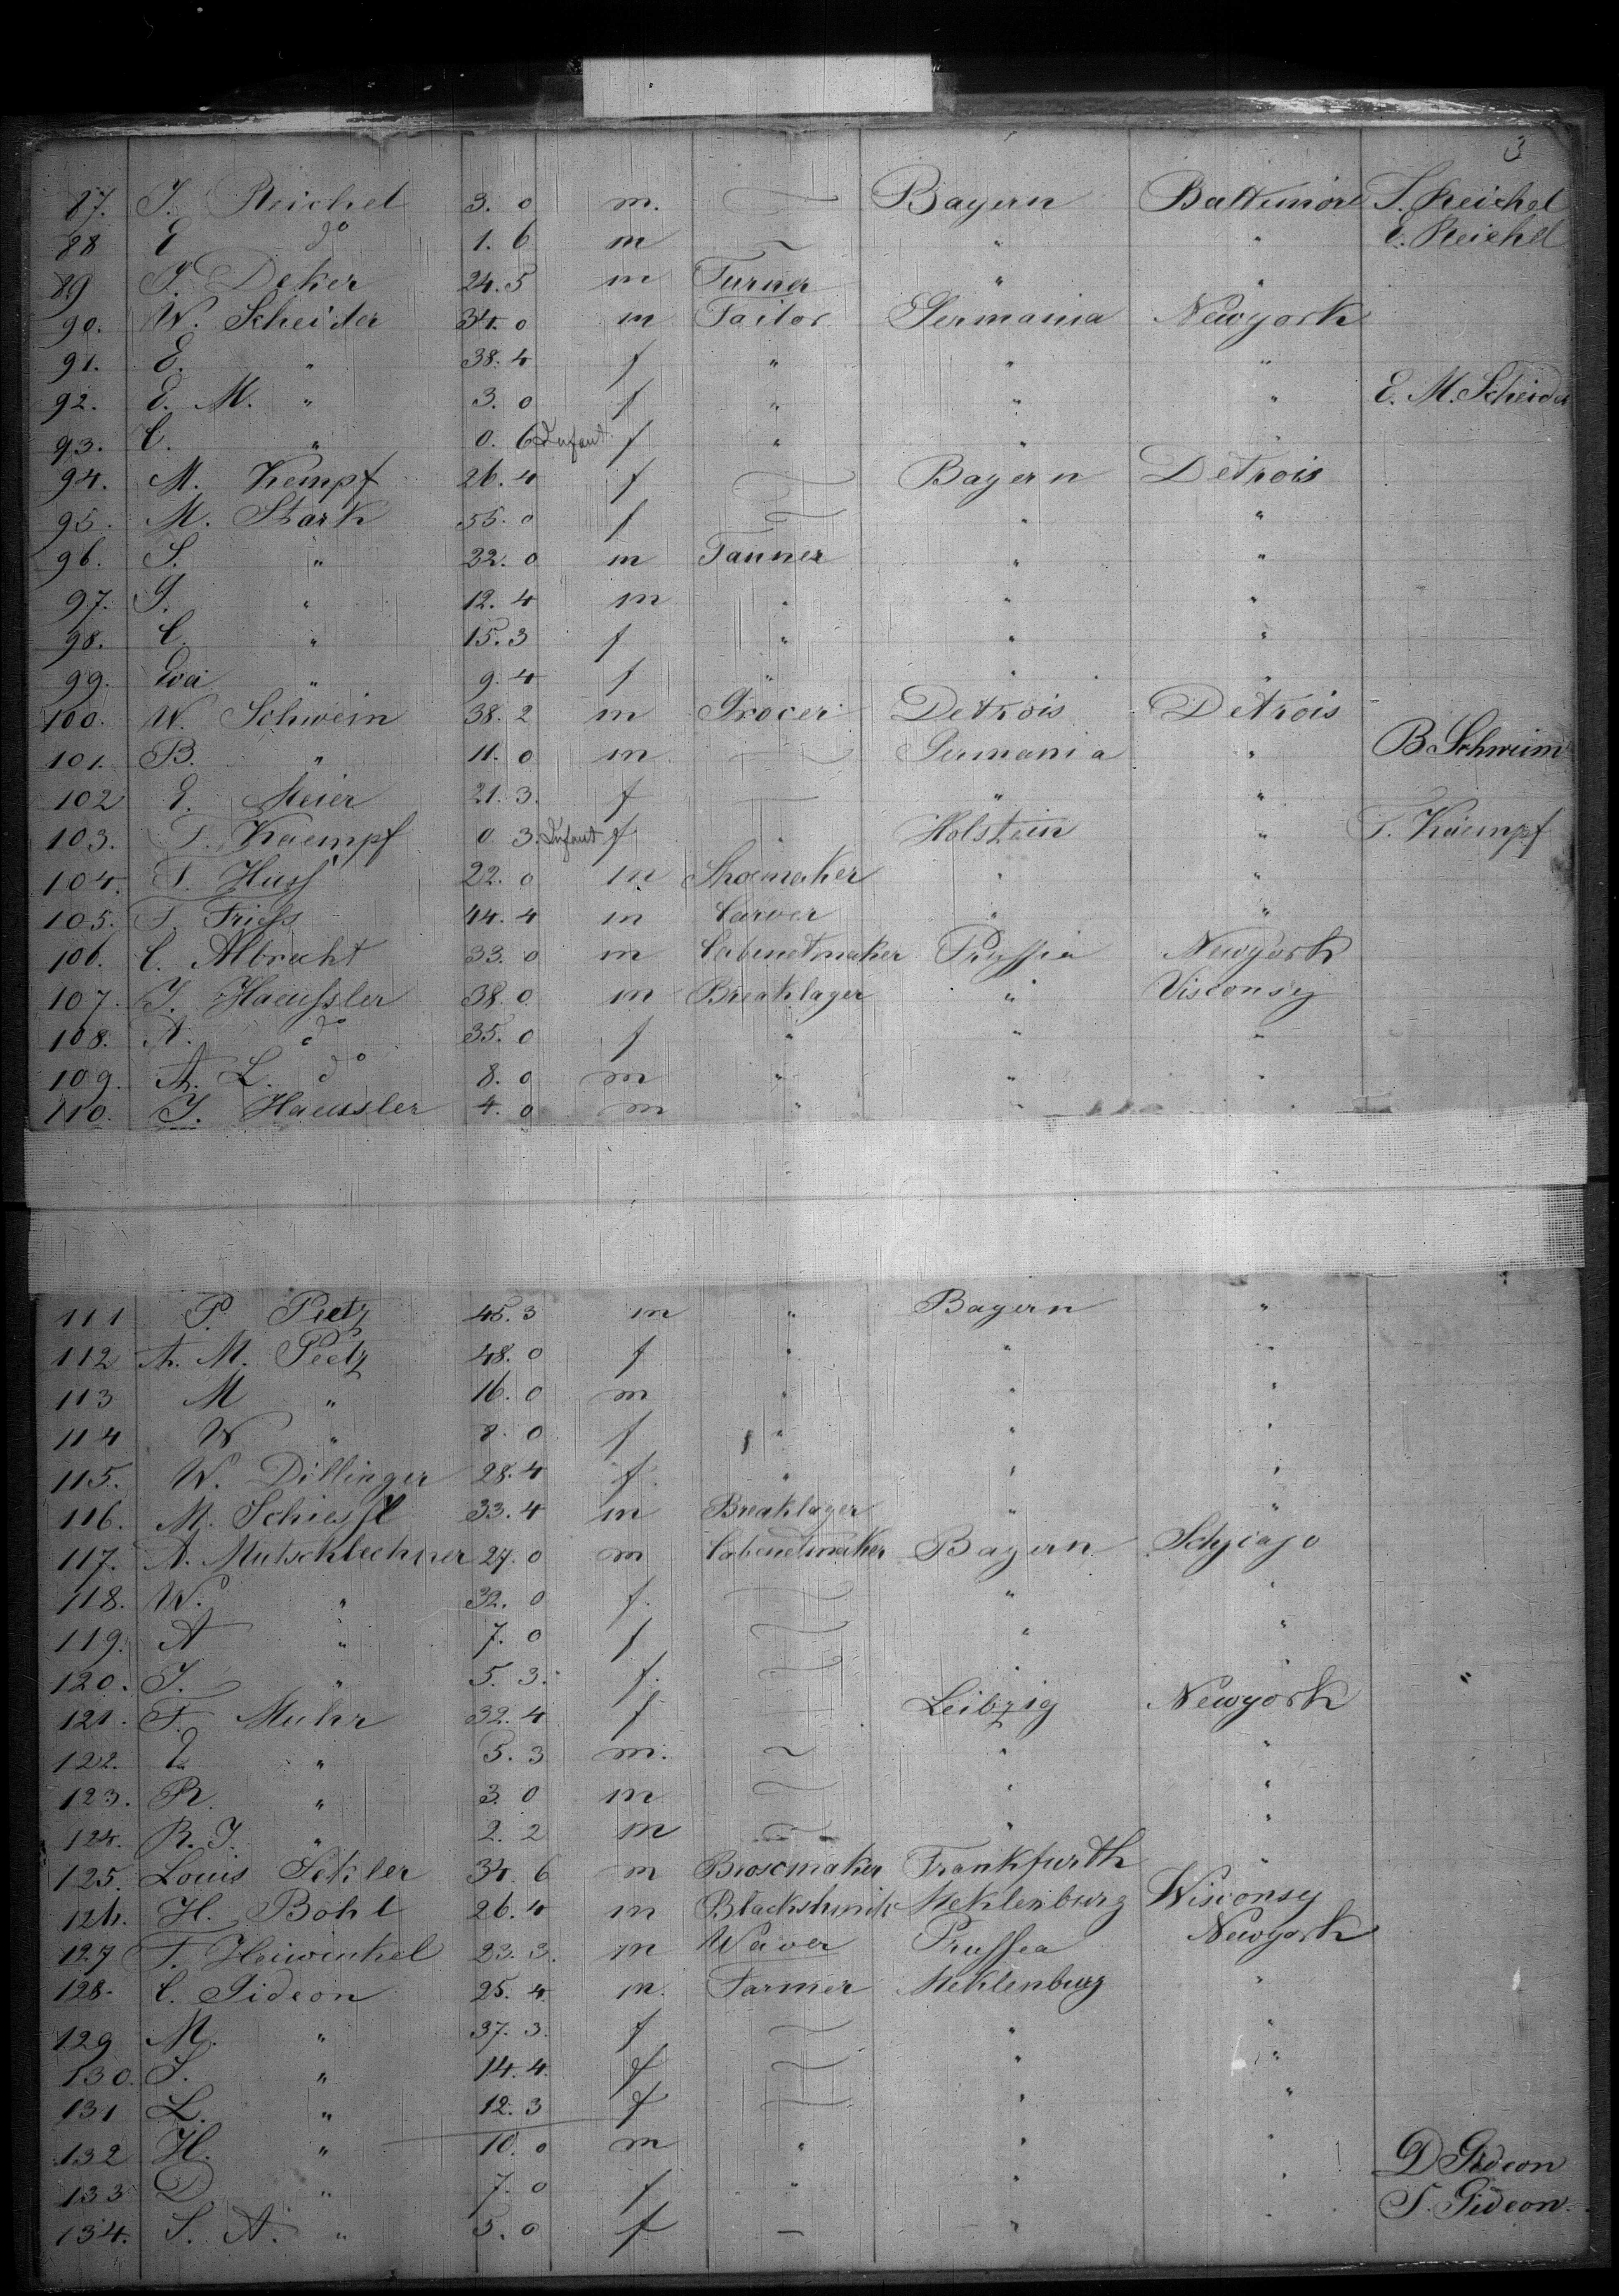 3
87. I. Reichel 3. 0 m. — Bayern Baltimore I. Reichel
88 E do 1. 6 m ~ " " E. Reichel
89 I. Deker 24. 5 m Turner " "
90. W. Scheider 34. 0 m Tailor Germania Newyork
91. E. " 38. 4 f " " "
92. E. M. " 3. 0 f " " " E. M. Scheider
93. C. " 0. 6 Infant f " " "
94. M. Kempf 26. 4 f — Bayern Detrois
95. M. Stark 55. 0 f — " "
96. S. " 22. 0 m Tanner " "
97. G. " 12. 4 m " " "
98. C. " 15. 3 f " " "
99. Eva " 9. 4 f " " "
100. W. Schwein 38. 2 m Grocer Detrois Detrois
101. B. " 11. 0 m — Germania " B Schweim
102 E. Meier 21. 3. f — " "
103. T. Kaempf 0. 3. Infant f " Holstein " T. Kaempf
104. T. Huss 22. 0 m Shoemaker " "
105. T. Friess 44. 4 m Carver " "
106. C. Albrecht 33. 0 m Cabenetmaker Prussia Newyork
107. I. Haeussler 38. 0. m Breaklager " Visconsy
108. A. do 35. 0 f " " "
109. A. L. do 8. 0 m " " "
110. I. Haeussler 4. 0 m " "
111 P. Peetz 45. 3 m " Bayern "
112 A. M. Peetz 48. 0 f " " "
113 M " 16. 0 m " " "
114 W " 8. 0 f " " "
115. W. Dillinger 28. 4 f " " "
116. M. Schiessl 33. 4 m Breaklager " "
117. A. Mutschlechner 27. 0 m Cabenetmaker Bayern Schjcajo
118. W. " 32. 0 f. — " "
119. A " 7. 0 f — " "
120. I. " 5. 3. f. — " " "
121. F. Muhr 32. 4 f — Leibzig Newyork
122. E " 5. 3 m. ~ " "
123. R. " 3. 0 m — " "
124. R. I. " 2. 2 m — " "
125. Louis Sekler 34. 6 m Frankfurth "
126. H. Bohl 26. 4 m Blackshmith Meklenburg Wisconsy
127 T. Heiwinkel 23. 3. m Waver Prussea Newyork
128. C. Gideon 25. 4. m. Farmer Meklenburg "
129 M. " 37. 3. f — " "
130. S. " 14. 4. f — " "
131 L. " 12. 3 f — " "
132 H. " 10. 0 m " " "
133 D " 7. 0 f " " " D Gideon
134. S. A. " 5. 0 f — " " S. Gideon.